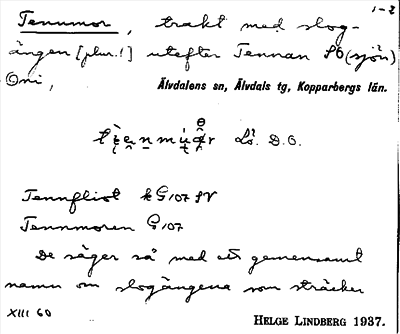 1-2
Tennmor, trakt med slog-
ängen [plur.!] utefter Tennan SO (sjön)
Oni,
Älvdalens sn, Älvdals tg, Kopparbergs län.
Lš. D.O.
Tennfliot k G107 fV
Tennmoren G107
De säger så med ett gemensamt
namn om slogängena som sträcker
XIII 60
HELGE LINDBERG 1937.